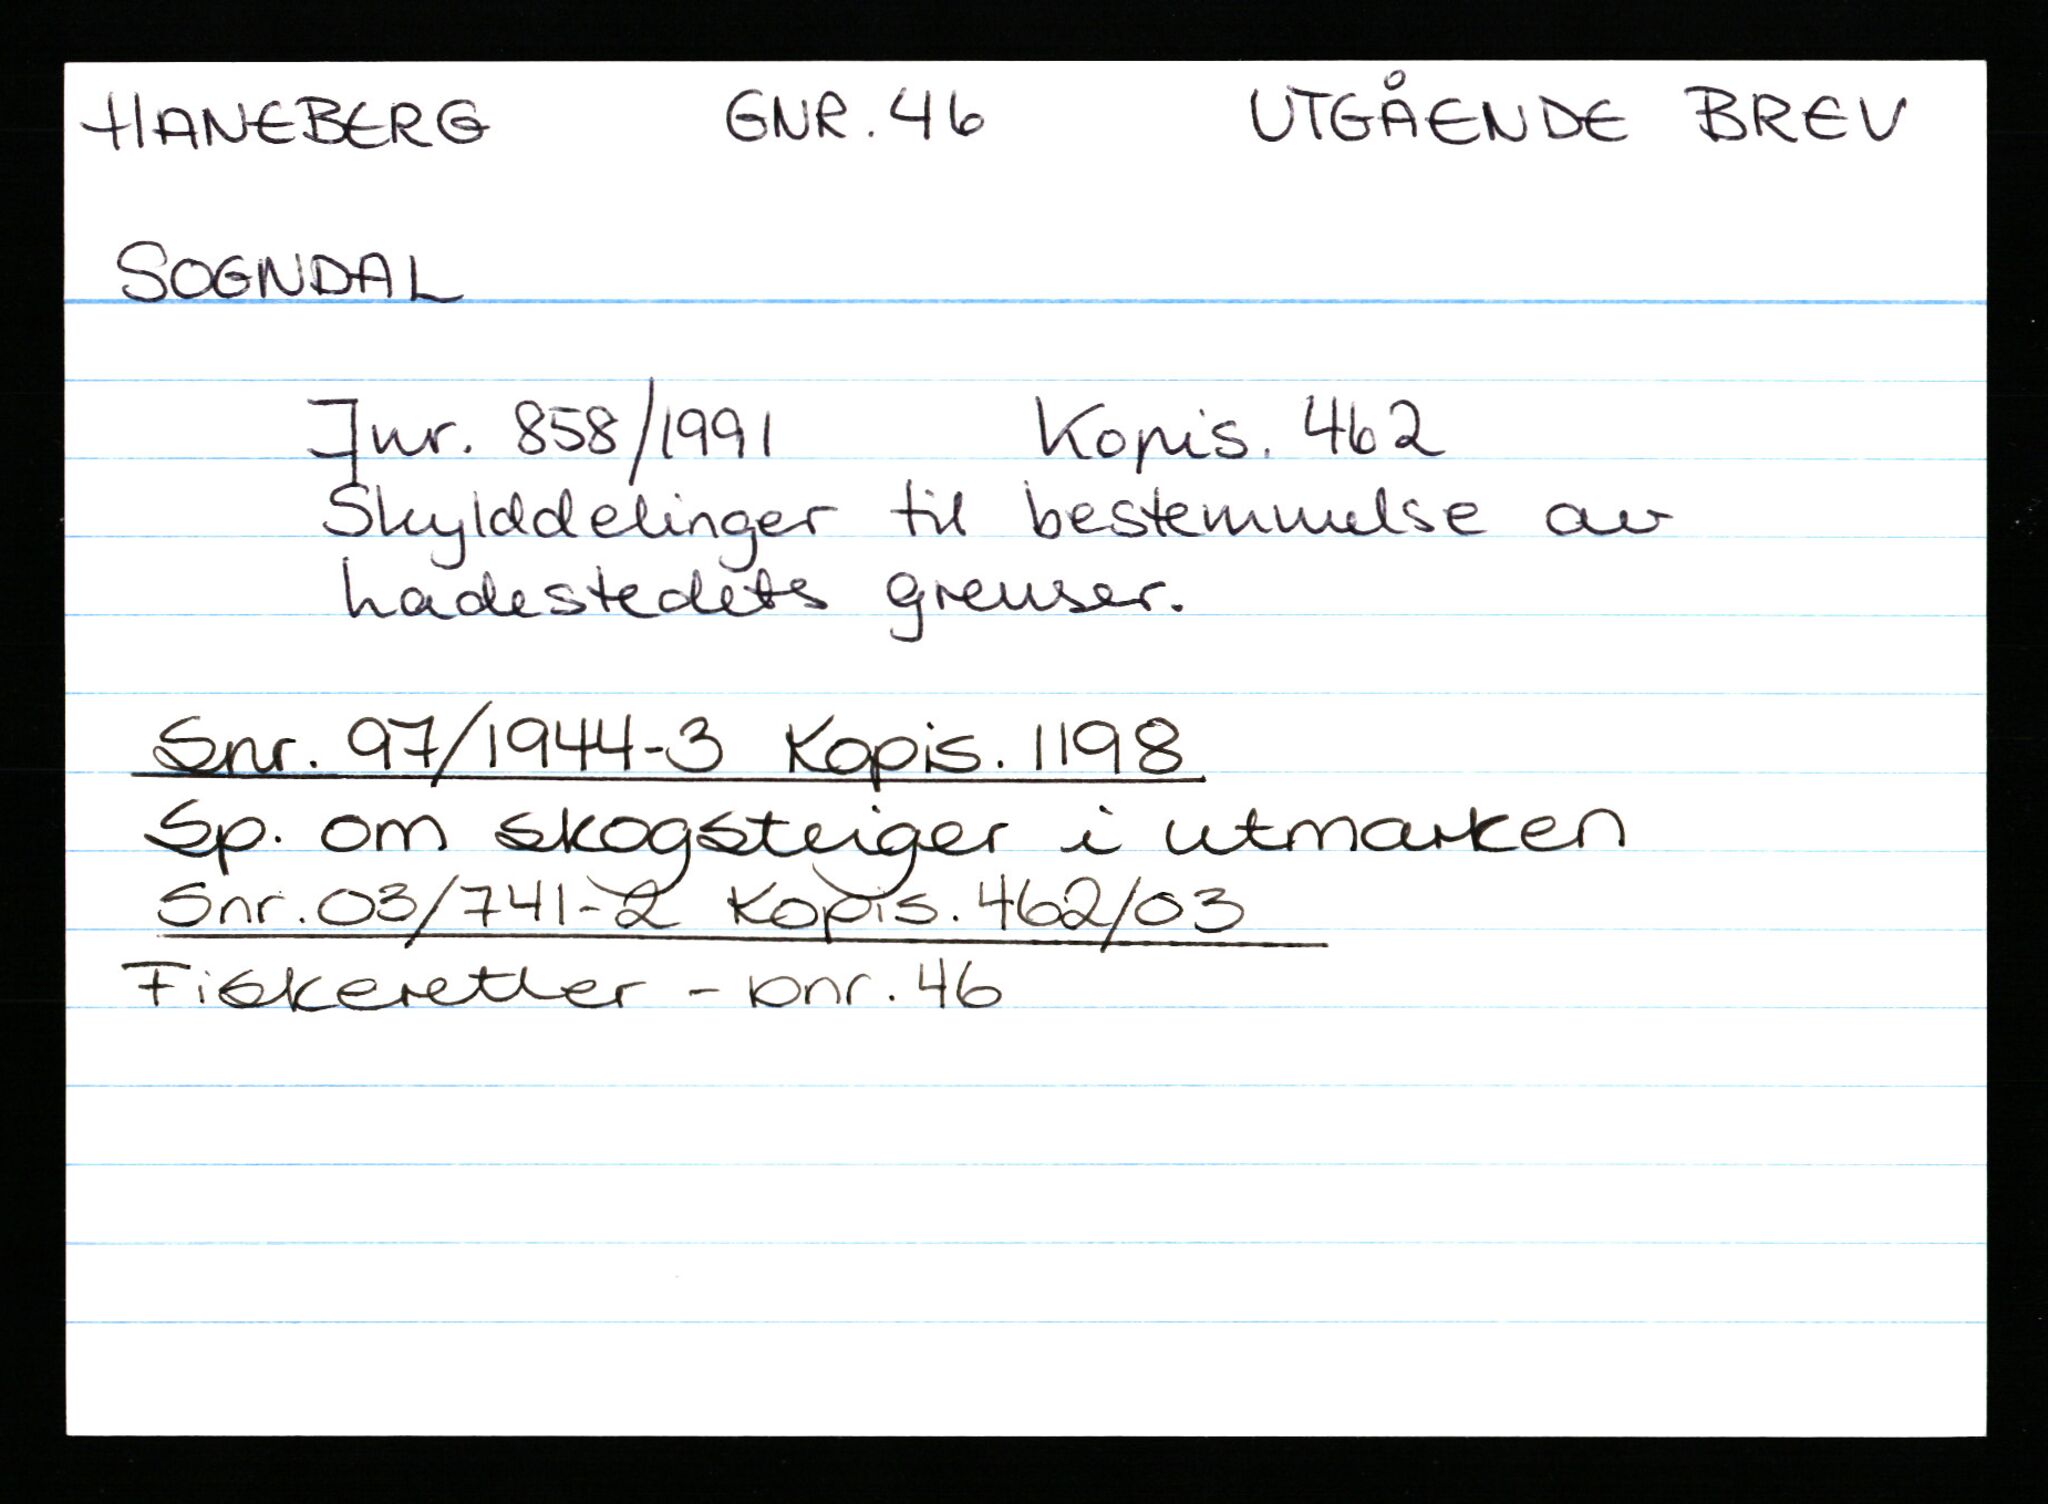 HANEBERG GNR. 46 UTGÅENDE BREV
SOGNDAL
Jnr. 858/1991 Kopis. 462
Skylddelinger til bestemmelse av
ladestedets grenser.
Snr. 97/1944-3 Kopis. 1198
Sp. om skogsteiger i utmarken
Snr. 03/741-2 Kopis. 462/03
Fiskeretter - bnr. 46